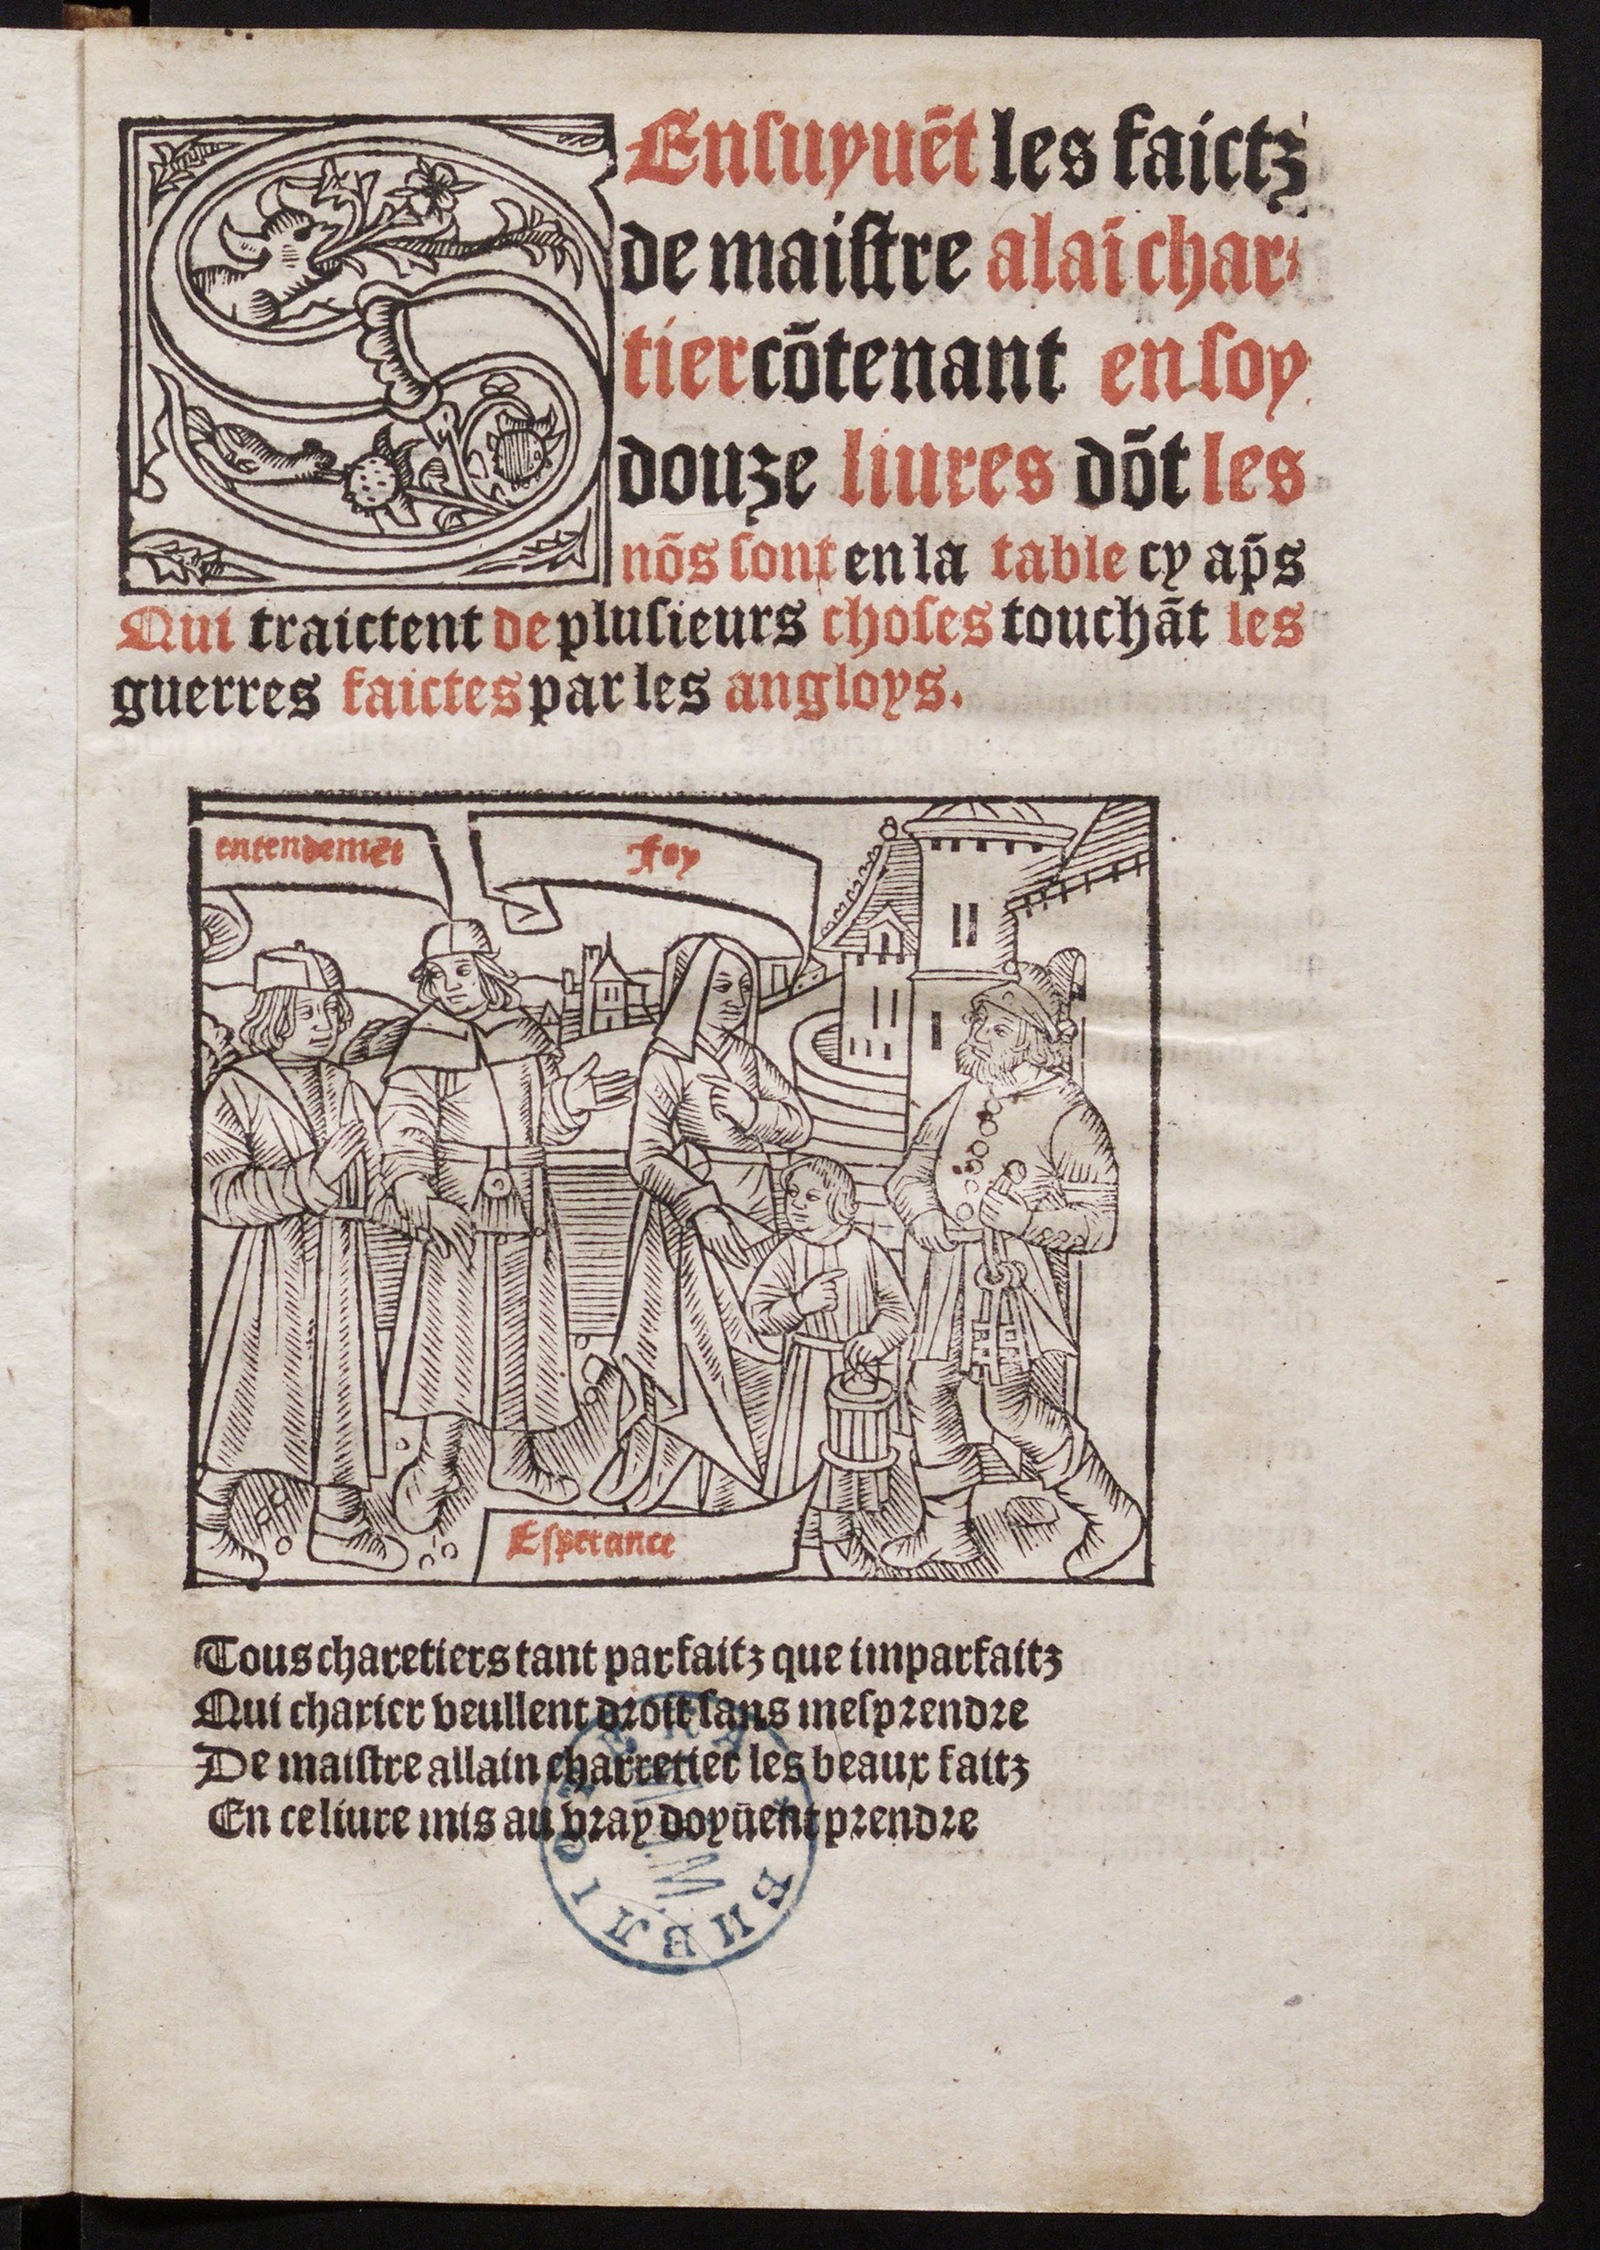 SEnſuyuēt les faictz
de maiſtre alaī char⸗
tier cōtenant en ſoy
douze liures dōt les
nōs ſont en la table cy ap̄s
Qui traictent de pluſieurs choſes touchāt les
guerres faictes par les angloys.
entendemēt
foy
Eſperance
Tous charetiers tant parfaitz que imparfaitz
Qui charier veullent droit ſans meſprendre
De maiſtre allain charretier les beaux faitz
En ce liure mis au vray doyuēnt prendre